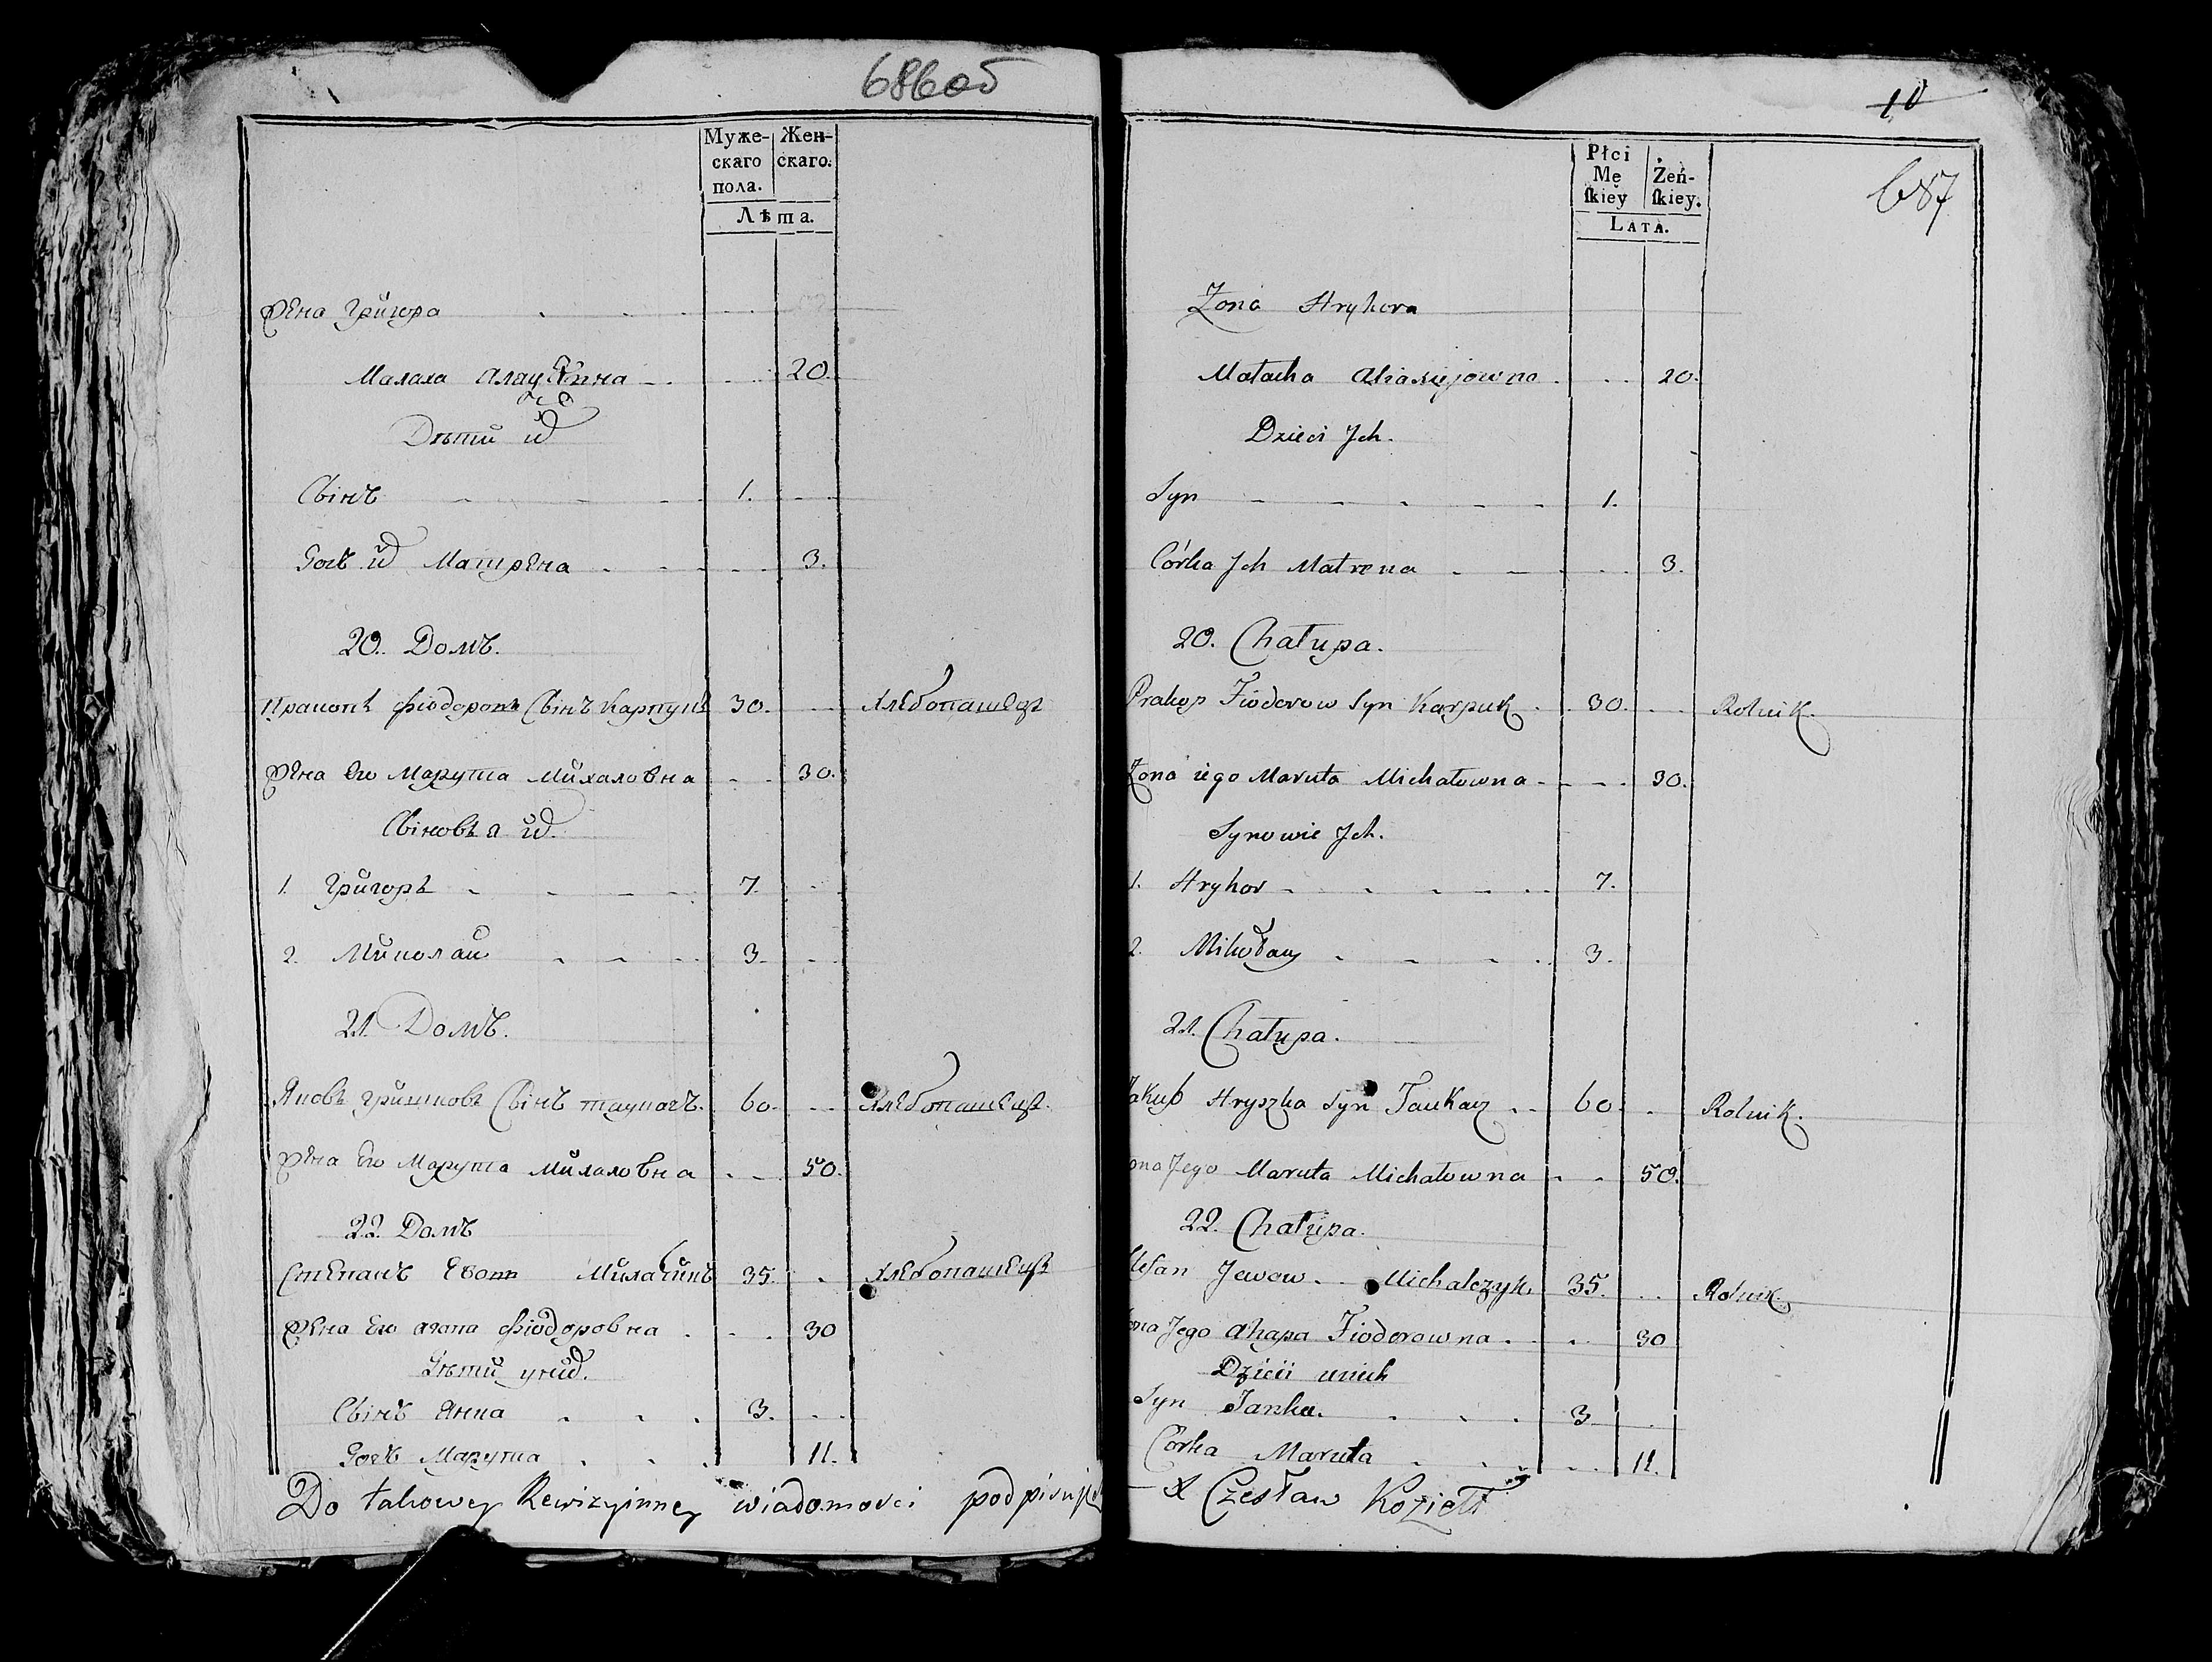 686 об
Муже- Жен-
скаго скаго.
пола.
Лѣта.
Жена Григора
Малаха 20.
Дѣти их
Сынъ 1.
Дочь их Матрена 3.
20. Домъ.
Пракопъ Фіодоровъ Сынъ Карпукъ 30. Хлебопашецъ
Жена Его Марута Михаловна 30.
Сыновья их.
1. Григоръ 7.
2. Миколай 3.
21. Домъ.
Яковъ Гришковъ Сынъ Таукачъ. 60. Хлебопашецъ.
Жена Его Марута Михаловна 50.
22 Домъ
Степанъ 35. Хлебопашецъ
Жена Его Агапа Фіодоровна 30
Дѣти у них.
Сынъ Янка 3.
Дочь Марута 11.
Do takowey Rewizyinney wiadomości podpisuję
10
687
Płci
Mę Żeń-
ſkiey ſkiey.
LATA.
Zona Hrykora
Małacha 20.
Dzieci Jch.
Syn 1.
Córka Jch Matrena 3.
20. Chałupa.
Prakop Fiodorow Syn Karpuk 30. Rolnik.
Zona iego Maruta Michałowna 30.
Synowie Jch.
1. Hryhor 7.
2. Mikołay 3.
21. Chałupa.
Jakub Hryszka Syn Taukacz 60. Rolnik.
Zona Jego Maruta Michałowna 50.
22. Chałupa.
Stefan Jewow Michalczyk 35. Rolnik.
Zona Jego Ahapa Fiodorowna 30
Dzieci unich
Syn Janka. 3
Córka Maruta 11.
X Czesław Koziełł